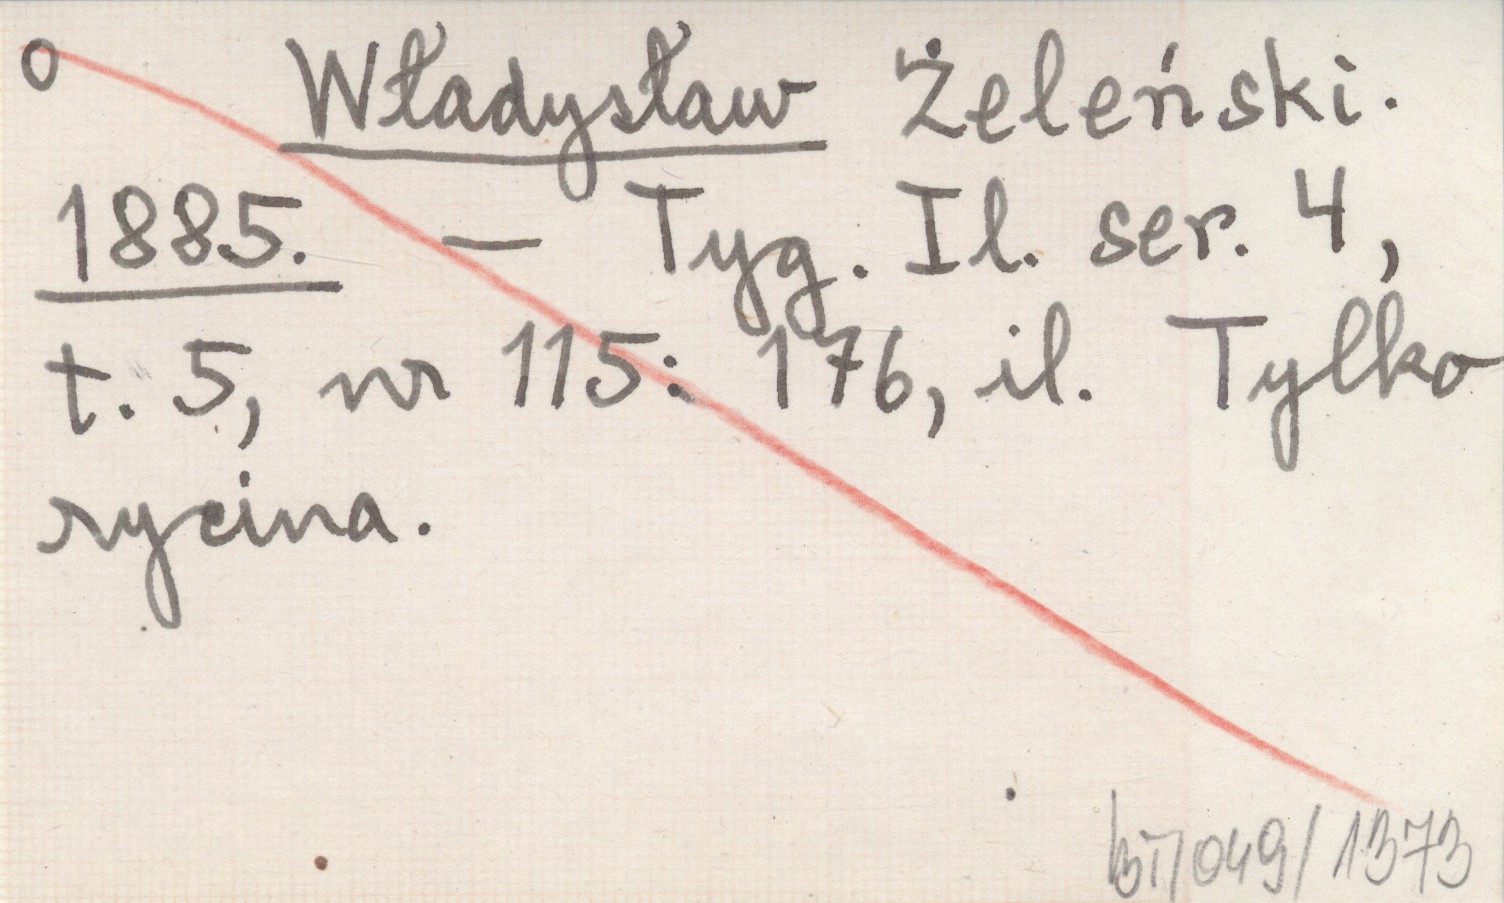 O Władysław Żeleński.
1885. — Tyg. Il. ser. 4,
t. 5, nr 115: 176, il. Tylko
rycina.
bt/049/1373